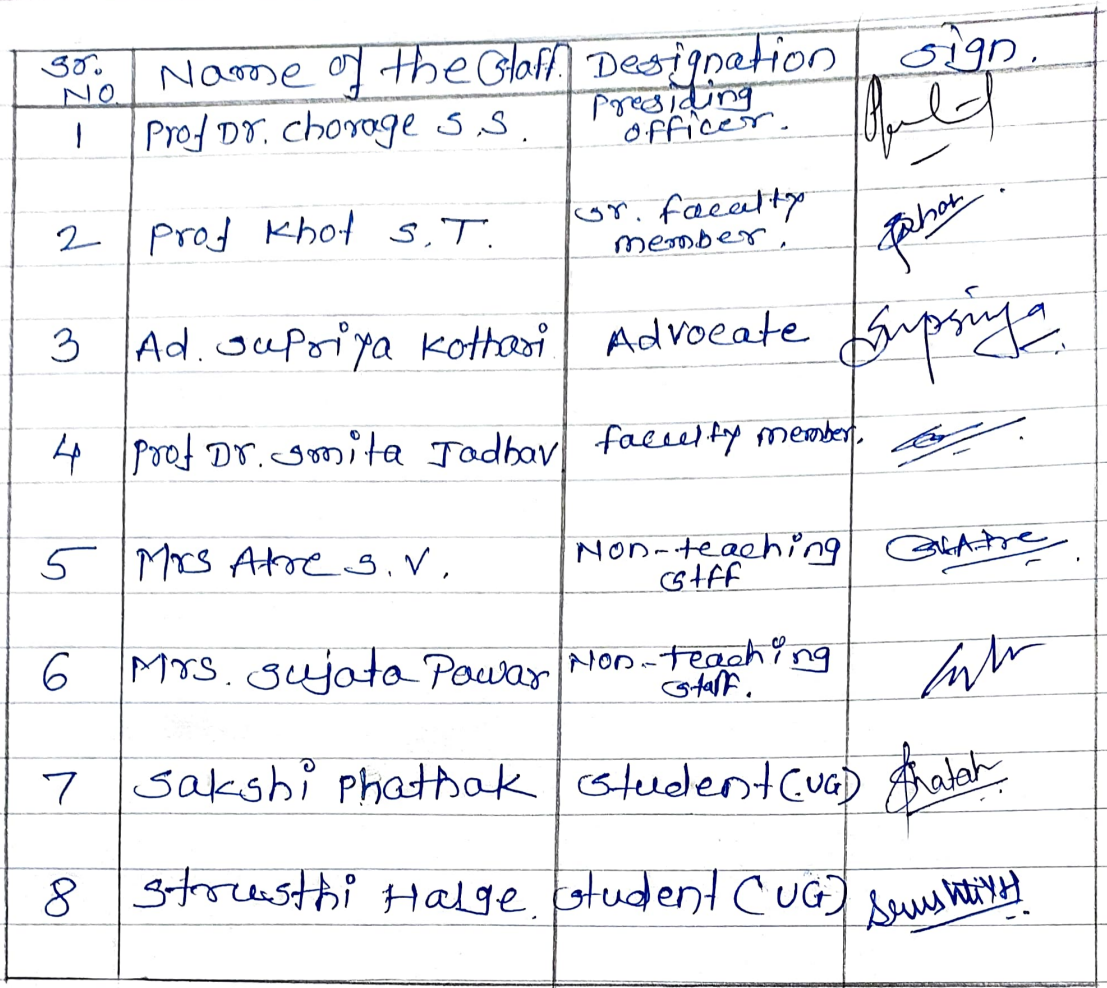 Sr. No. Name of the Staff. Designation Sign.
1 Prof Dr. Chorage S.S. Presiding officer.
2 Prof Khot S.T. Sr. faculty member.
3 Ad. Supriya Kothari Advocate Supriya
4 Prof Dr. Smita Jadhav faculty member.
5 Mrs Atre S.V. Non-teaching Stff
6 Mrs. Sujata Pawar Non-teaching Staff.
7 Sakshi Phathak Student (UG)
8 Strusthi Halge. Student (UG)